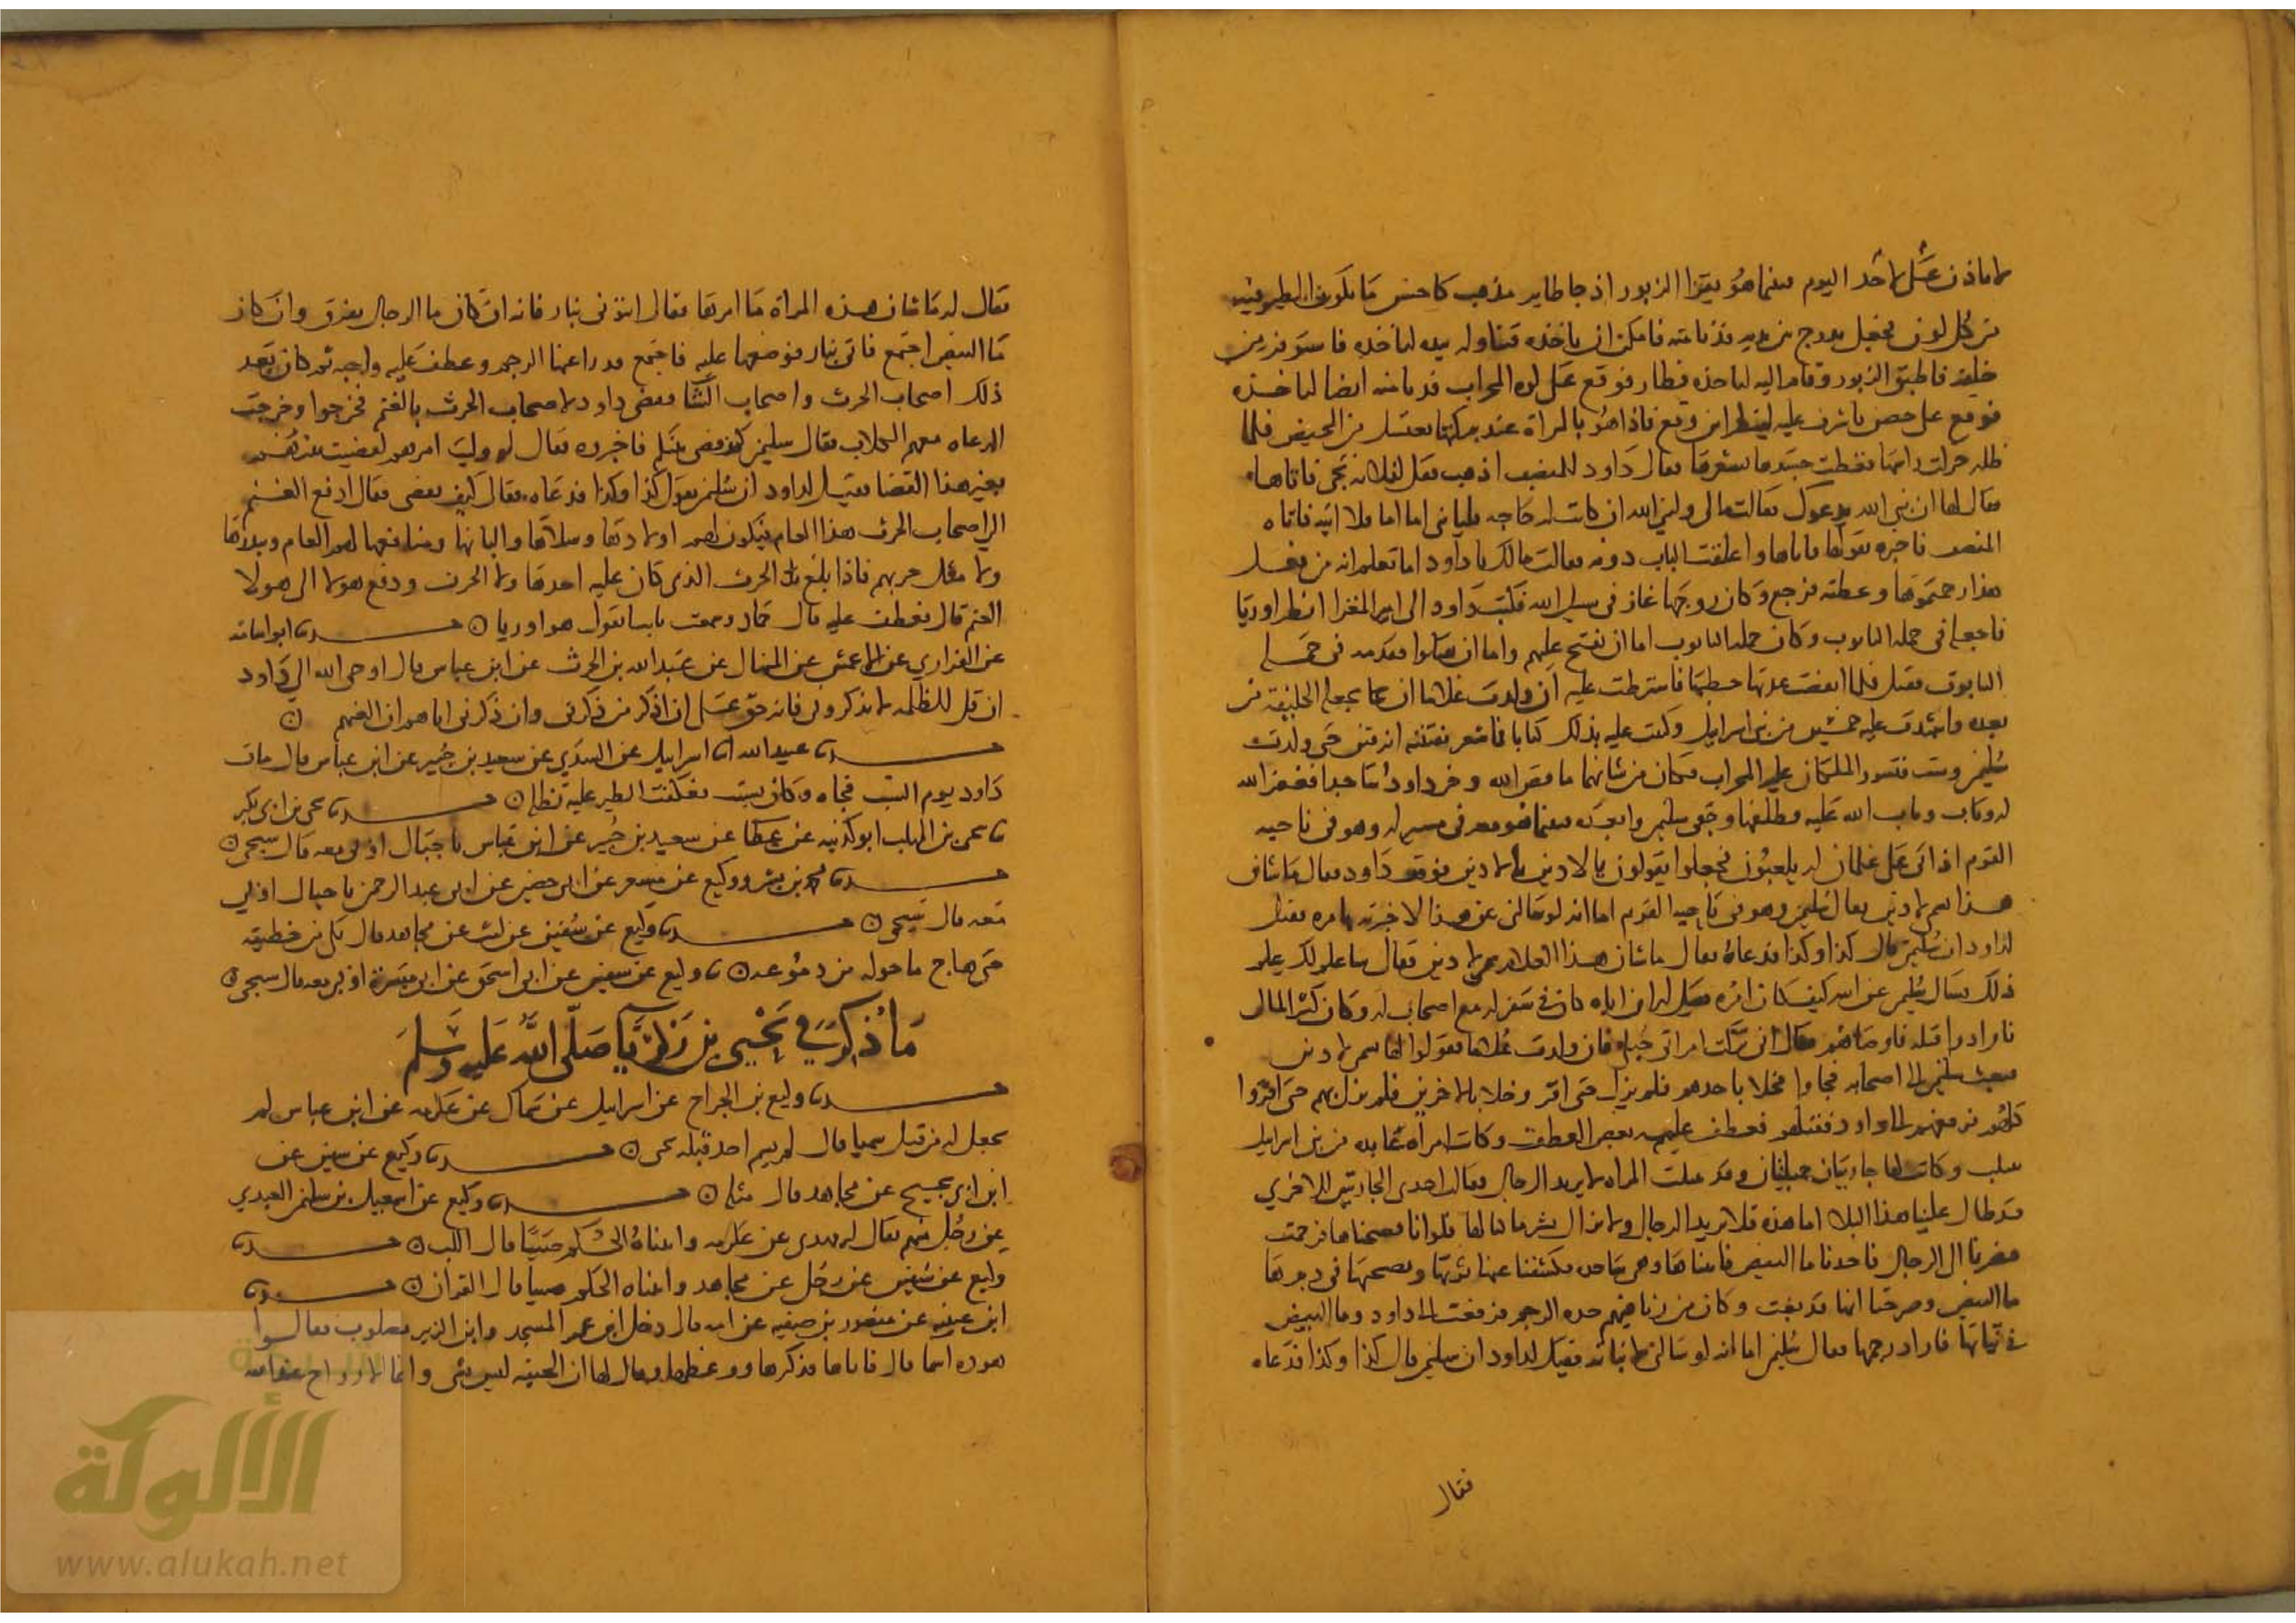 لا ياذن علي لاحد اليوم فبينما هو يقرا الزبور اذ جا طاير مذهب كاحسن ما يكون الطير فيه
من كل لون فجعل يدرج بين يديه فدنا منه فامكن ان ياخذه فتناوله بيده لياخذه فاستوفزه من
خلفه فاطبق الزبور وقام اليه لياخذه فطار فوقع على كوة المحراب فدنا منه ايضا لياخذه
فوقع على حصن فاشرف عليه لينظر اين وقع فاذا هو بالمراة عند بركتها تغتسل من الحيض فلما
ظله حركت راسها فغطت جسدها بشعرها فقال داود للمنصف اذهب فقل لفلانه تجي فاتاها
فقال لها ان نبي الله يدعوك فقالت مالي ولنبي الله ان كانت له حاجه فلياتني اما انا فلا اتيه فاتاه
المنصف فاخبره بقولها فاتاها واغلقت الباب دونه فقالت مالك يا داود اما تعلم انه من فعل
هذا رجمتموها وعظته فرجع وكان زوجها غاز في سبيل الله فكتب داود الى امير المغزا انظر اوريا
فاجعله في حملة التابوت وكان حملة التابوت اما ان يفتح عليهم واما ان يقتلوا فقدمه في حملة
التابوت فقتل فلما انقضت عدتها خطبها فاشترطت عليه ان ولدت غلاما ان يجعله الخليفة من
بعده واشهدت عليه خمسين من بني اسرايل وكتبت عليه بذلك كتابا فما شعر بفتنته انه فتن حتى ولدت
سليمن وشب فتسور الملكان عليه المحراب فكان من شانهما ما قص الله وخر داود ساجدا فغفر الله
له وتاب وتاب الله عليه فطلقها وجفى سليمن وابعده فبينما هو معه في مسير له وهو في ناحيه
القوم اذ اتى على غلمان له يلعبون فجعلوا يقولون يا لادين يا لادين فوقف داود فقال ما شان
هذا سمي لادين فقال سليمن وهو في ناحيه القوم اما انه لو سالني عن هذا لاخبرته بامره فقيل
لداود ان سليمن قال كذا وكذا فدعاه فقال ما شان هذا الغلام سمي لادين فقال ساعلم لك علم
ذلك فسال سليمن عن ابيه كيف كان امره فقيل له ان اباه كان في سفر له مع اصحاب له وكان كثير المال
فارادوا قتله فاوصاهم فقال اني تركت امراتي حبلى فان ولدت غلاما فقولوا لها تسميه لادين
فبعث سليمن الى اصحابه فجاوا فخلا باحدهم فلم يزل حتى اقر وخلا بالاخرين فلم يزل بهم حتى اقروا
كلهم فرفعهم الى داود فقتلهم فعطف عليه بعض العطف وكانت امراه عابده من بني اسرايل
تبتلت وكانت لها جاريتان جميلتان وقد تبتلت المراه لا تريد الرجال فقالت احدى الجاريتين للاخرى
قد طال علينا هذا البلا اما هذه فلا تريد الرجال ولا نزال بشر ما كنا لها فلو انا فضحناها فرجمت
فصرنا الى الرجال فاخذتا ما البيض فاتتاها وهي ساجده فكشفتا عنها ثوبها ونضحتا في دبرها
ما البيض وصرختا انها قد بغت وكان من زنا فيهم حده الرجم فرفعت الى داود وما البيض
في ثيابها فاراد رجمها فقال سليمن اما انه لو سالني لانباته فقيل لداود ان سليمن قال كذا وكذا فدعاه
فقال
فقال له ما شان هذه المراة ما امرها فقال ائتوني بنار فانه ان كان ما الرجال تفرق وان كان
ما البيض اجتمع فاتي بنار فوضعها عليه فاجتمع فدرا عنها الرجم وعطف عليه واحبه ثم كان بعد
ذلك اصحاب الحرث واصحاب الشا فقضى داود لاصحاب الحرث بالغنم فخرجوا وخرجت
الرعاه معهم الكلاب فقال سليمن كيف قضى بينكم فاخبروه فقال لو وليت امرهم لقضيت بينهم
بغير هذا القضا فقيل لداود ان سليمن يقول كذا وكذا فدعاه فقال كيف تقضي فقال ادفع الغنم
الى اصحاب الحرث هذا العام فيكون لهم اولادها وسلاها والبانها ومنافعها لهم العام ويبذر ها
ولا مثل حرثهم فاذا بلغ الحرث الذي كان عليه اخذ ها ولا الحرث ودفع هولا الى هولا
الغنم قال فعطف عليه قال حماد وسمعت ثابتا يقول هو اوريا ○ حدثنا ابو اسامه
عن الفزاري عن الاعمش عن المنهال عن عبد الله بن الحرث عن ابن عباس قال اوحى الله الى داود
ان قل للظلمه لا يذكروني فانه حق علي ان اذكر من ذكرني وان ذكري اياهم ان العنهم ○
حدثنا عبيد الله انا اسرايل عن السدي عن سعيد بن جبير عن ابن عباس قال مات
داود يوم السبت فجاه وكان يسبت فعكفت الطير عليه تظله ○ حدثنا يحي بن ابي بكير
نا يحي بن المهلب ابو كدينه عن عطا عن سعيد بن جبير عن ابن عباس يا جبال اوبي معه قال سبحي ○
حدثنا محمد بن بشر ووكيع عن مسعر عن ابي حصين عن ابي عبد الرحمن يا جبال اوبي
معه قال سبحي ○ حدثنا وكيع عن سفين عن ليث عن مجاهد قال بكى من خطيته
حتى هاج ما حوله من دموعه ○ نا وكيع عن سفين عن ابي اسحق عن ابي ميسرة اوبي معه قال سبحي ○
ما ذكر في يحيى بن زكريا صلى الله عليه وسلم
حدثنا وكيع بن الجراح عن اسرايل عن سماك عن عكرمه عن ابن عباس لم
نجعل له من قبل سميا قال لم يسم احد قبله يحى ○ حدثنا وكيع عن سفين عن
ابن ابي نجيح عن مجاهد قال مثله ○ حدثنا وكيع عن اسمعيل بن سليمن العبدي
عن رجل منهم يقال له مهدي عن عكرمه واتيناه الحكم صبيا قال اللب ○ حدثنا
وكيع عن سفين عن رجل عن مجاهد واتيناه الحكم صبيا قال القران ○ حدثنا
ابن عيينه عن منصور بن صفيه عن امه قال دخل ابن عمر المسجد وابن الزبير مصلوب فقالوا
هذه اسما قال فاتاها فذكرها ووعظها وقال لها ان الجيفه ليس بشي وانما الارواح عند الله
الألوكة
www.alukah.net